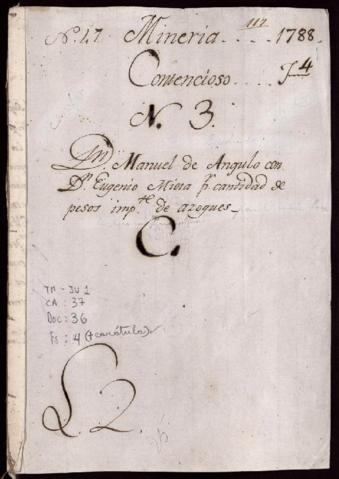 112
N. 17 Mineria .... 1788.
Contencioso .... J 4
N. 3.
Dn Manuel de Angulo con
Dn Eugenio Miota pr cantidad de
pesos impte de azogues_
C.
TM - JU 1
CA : 37
Doc : 36
Fs : 4 (+ carátula)
L 2.